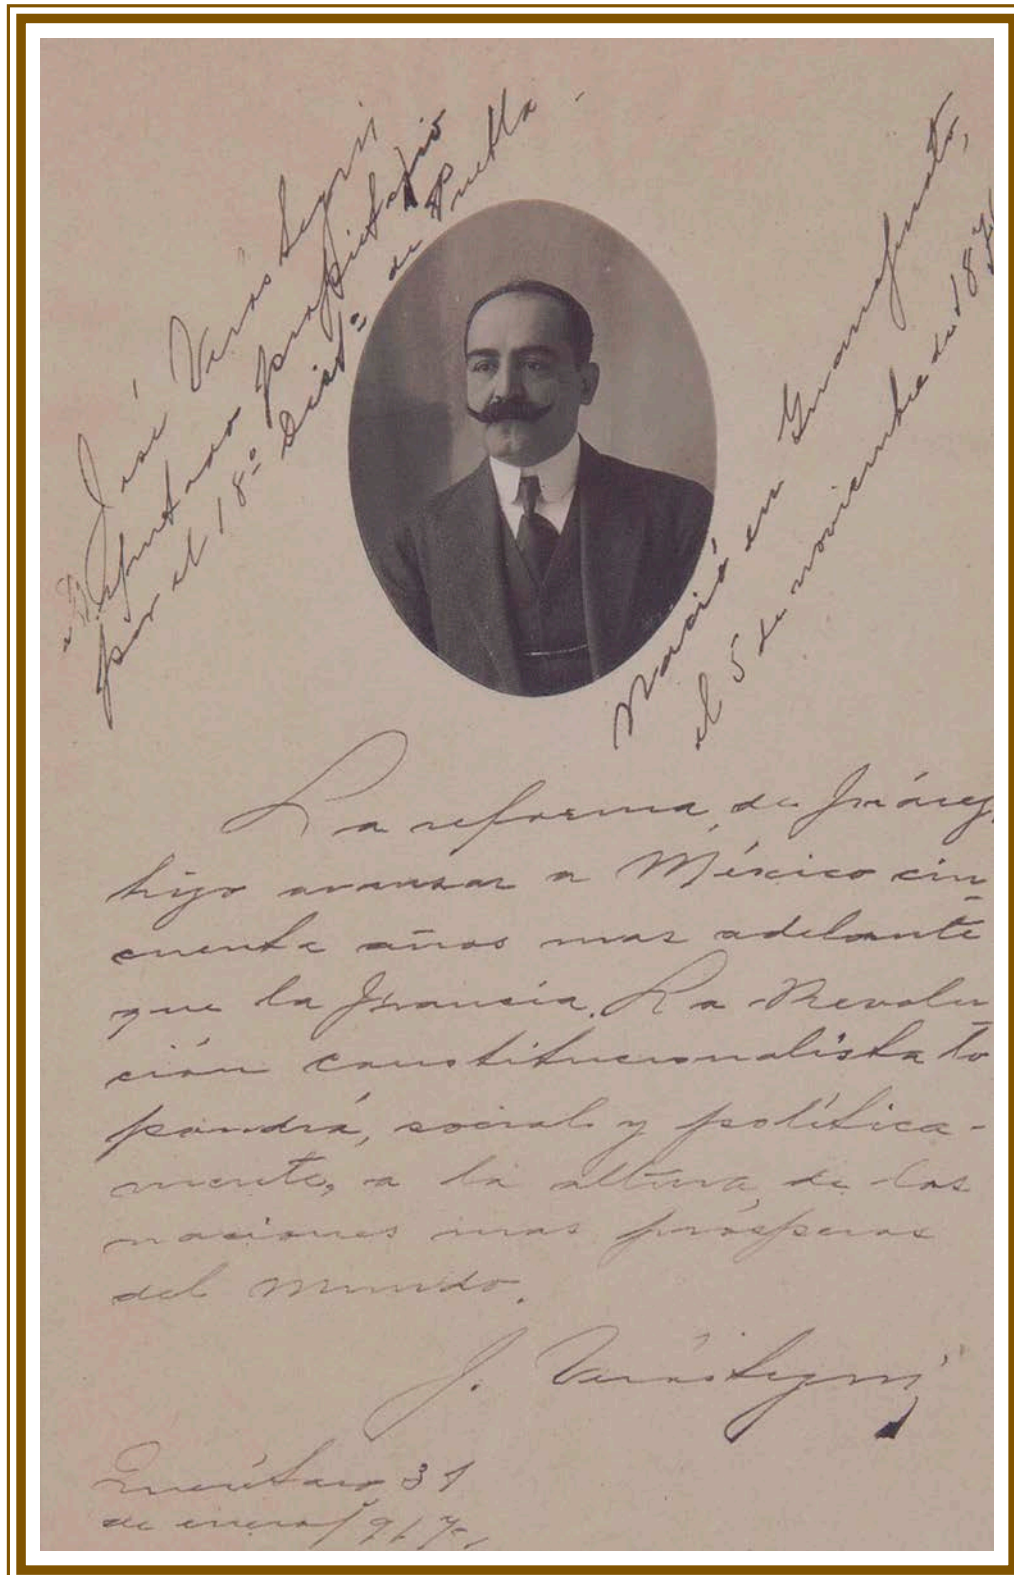 José Verástegui
Diputado propietario
por el 18º Distº de Puebla
Nació en Guanajuato,
el 5 de noviembre de 187
La reforma, de Juárez,
hizo avansar a México cin
cuenta años mas adelante
que la Francia. La Revolu
ción constitucionalista lo
pondrá, social y política-
mente, a la altura, de las
naciones mas prósperas
del mundo.
J. Verástegui
Querétaro 31
de enero/917,